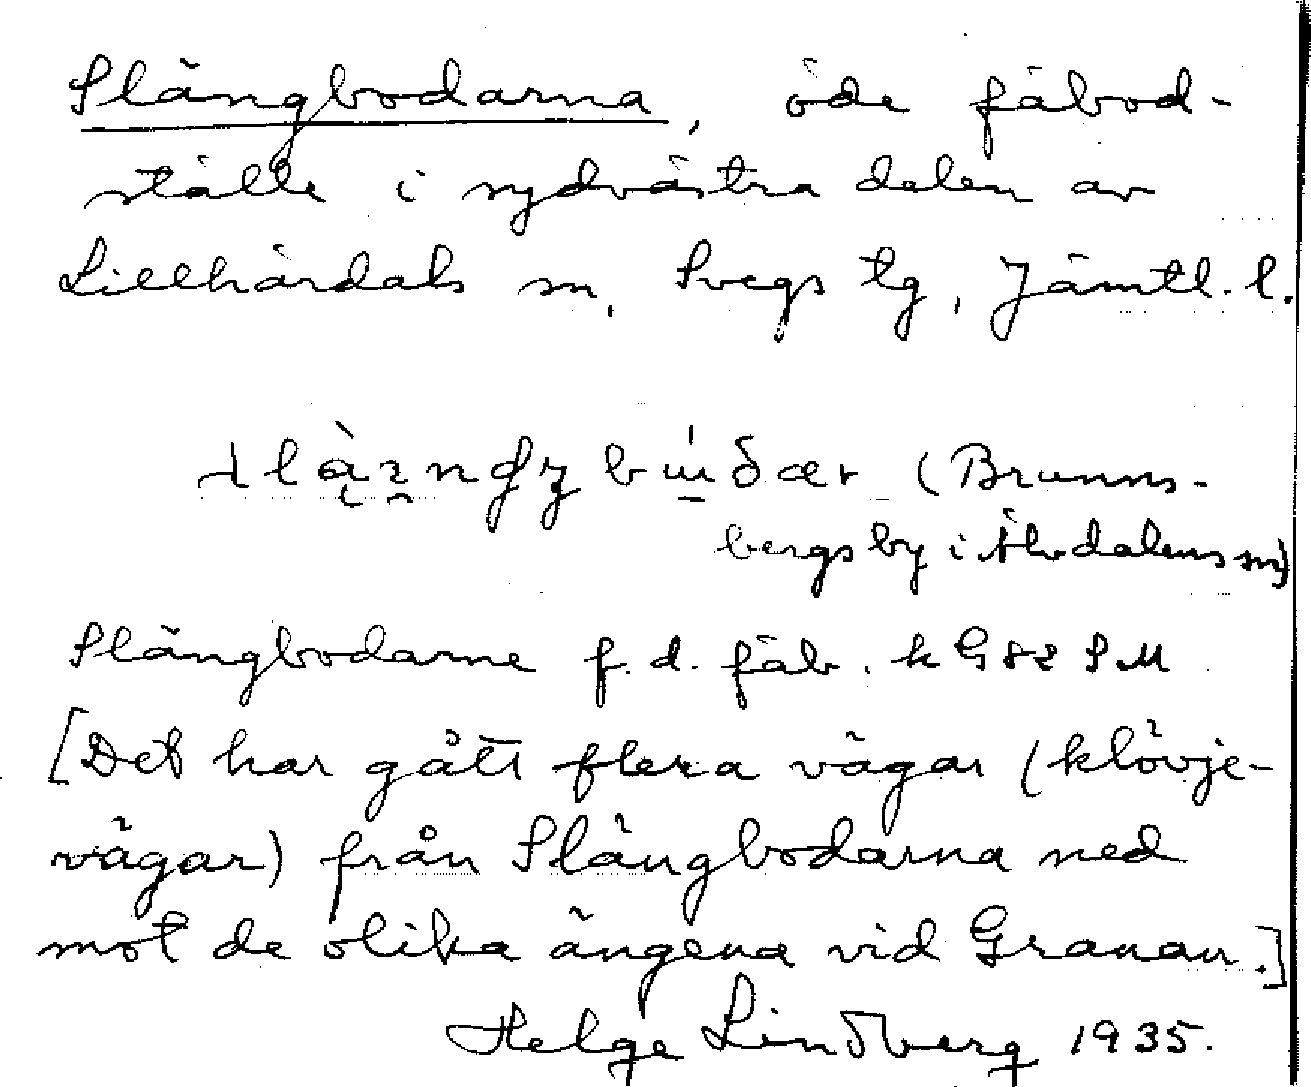 Slängbodarna, öde fäbod-
ställe i sydvästra delen av
Lillhärdals sn, Svegs tg, Jämtl. l.
(Brunns-
bergs by i Älvdalens sn)
Slängbodarne f. d. fäb. k G82 SM
[Det har gått flera vägar (klövje-
vägar) från Slängbodarna ned
mot de olika ängena vid Granan.]
Helge Lindberg 1935.